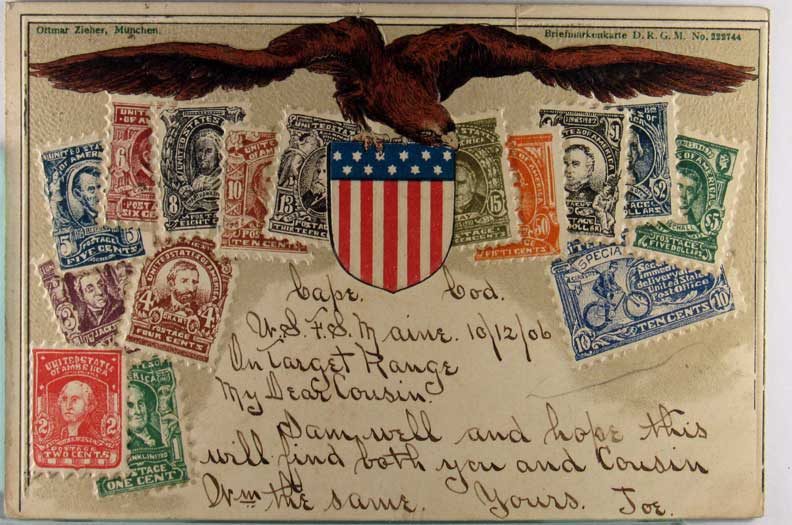 Ottmar Zieher, München.
Briefmarkenkarte D. R. G. M. No. 222744
UNITED STATES
OF AMERICA
5
POSTAGE
FIVE CENTS
6
SIX CENTS
8
10
TEN CENTS
UNITED STATES
13
15
50
OF AMERICA
POSTAGE
FIFTY CENTS
OF AMERICA
$1
DOLLAR
$2
POSTAGE
DOLLARS
$5
POSTAGE
FIVE DOLLARS
3
JACKSON
UNITED STATES OF AMERICA
4 4
GRANT
POSTAGE
FOUR CENTS
SPECIAL
10
TEN CENTS
UNITED STATES
OF AMERICA
2 2
POSTAGE
TWO CENTS
FRANKLIN
POSTAGE
ONE CENT
Cape. Cod.
U.S.F.S. Maine. 10/12/06
On Target Range
My Dear Cousin.
I am well and hope this
will find both you and Cousin
Wm the same. Yours. Joe.